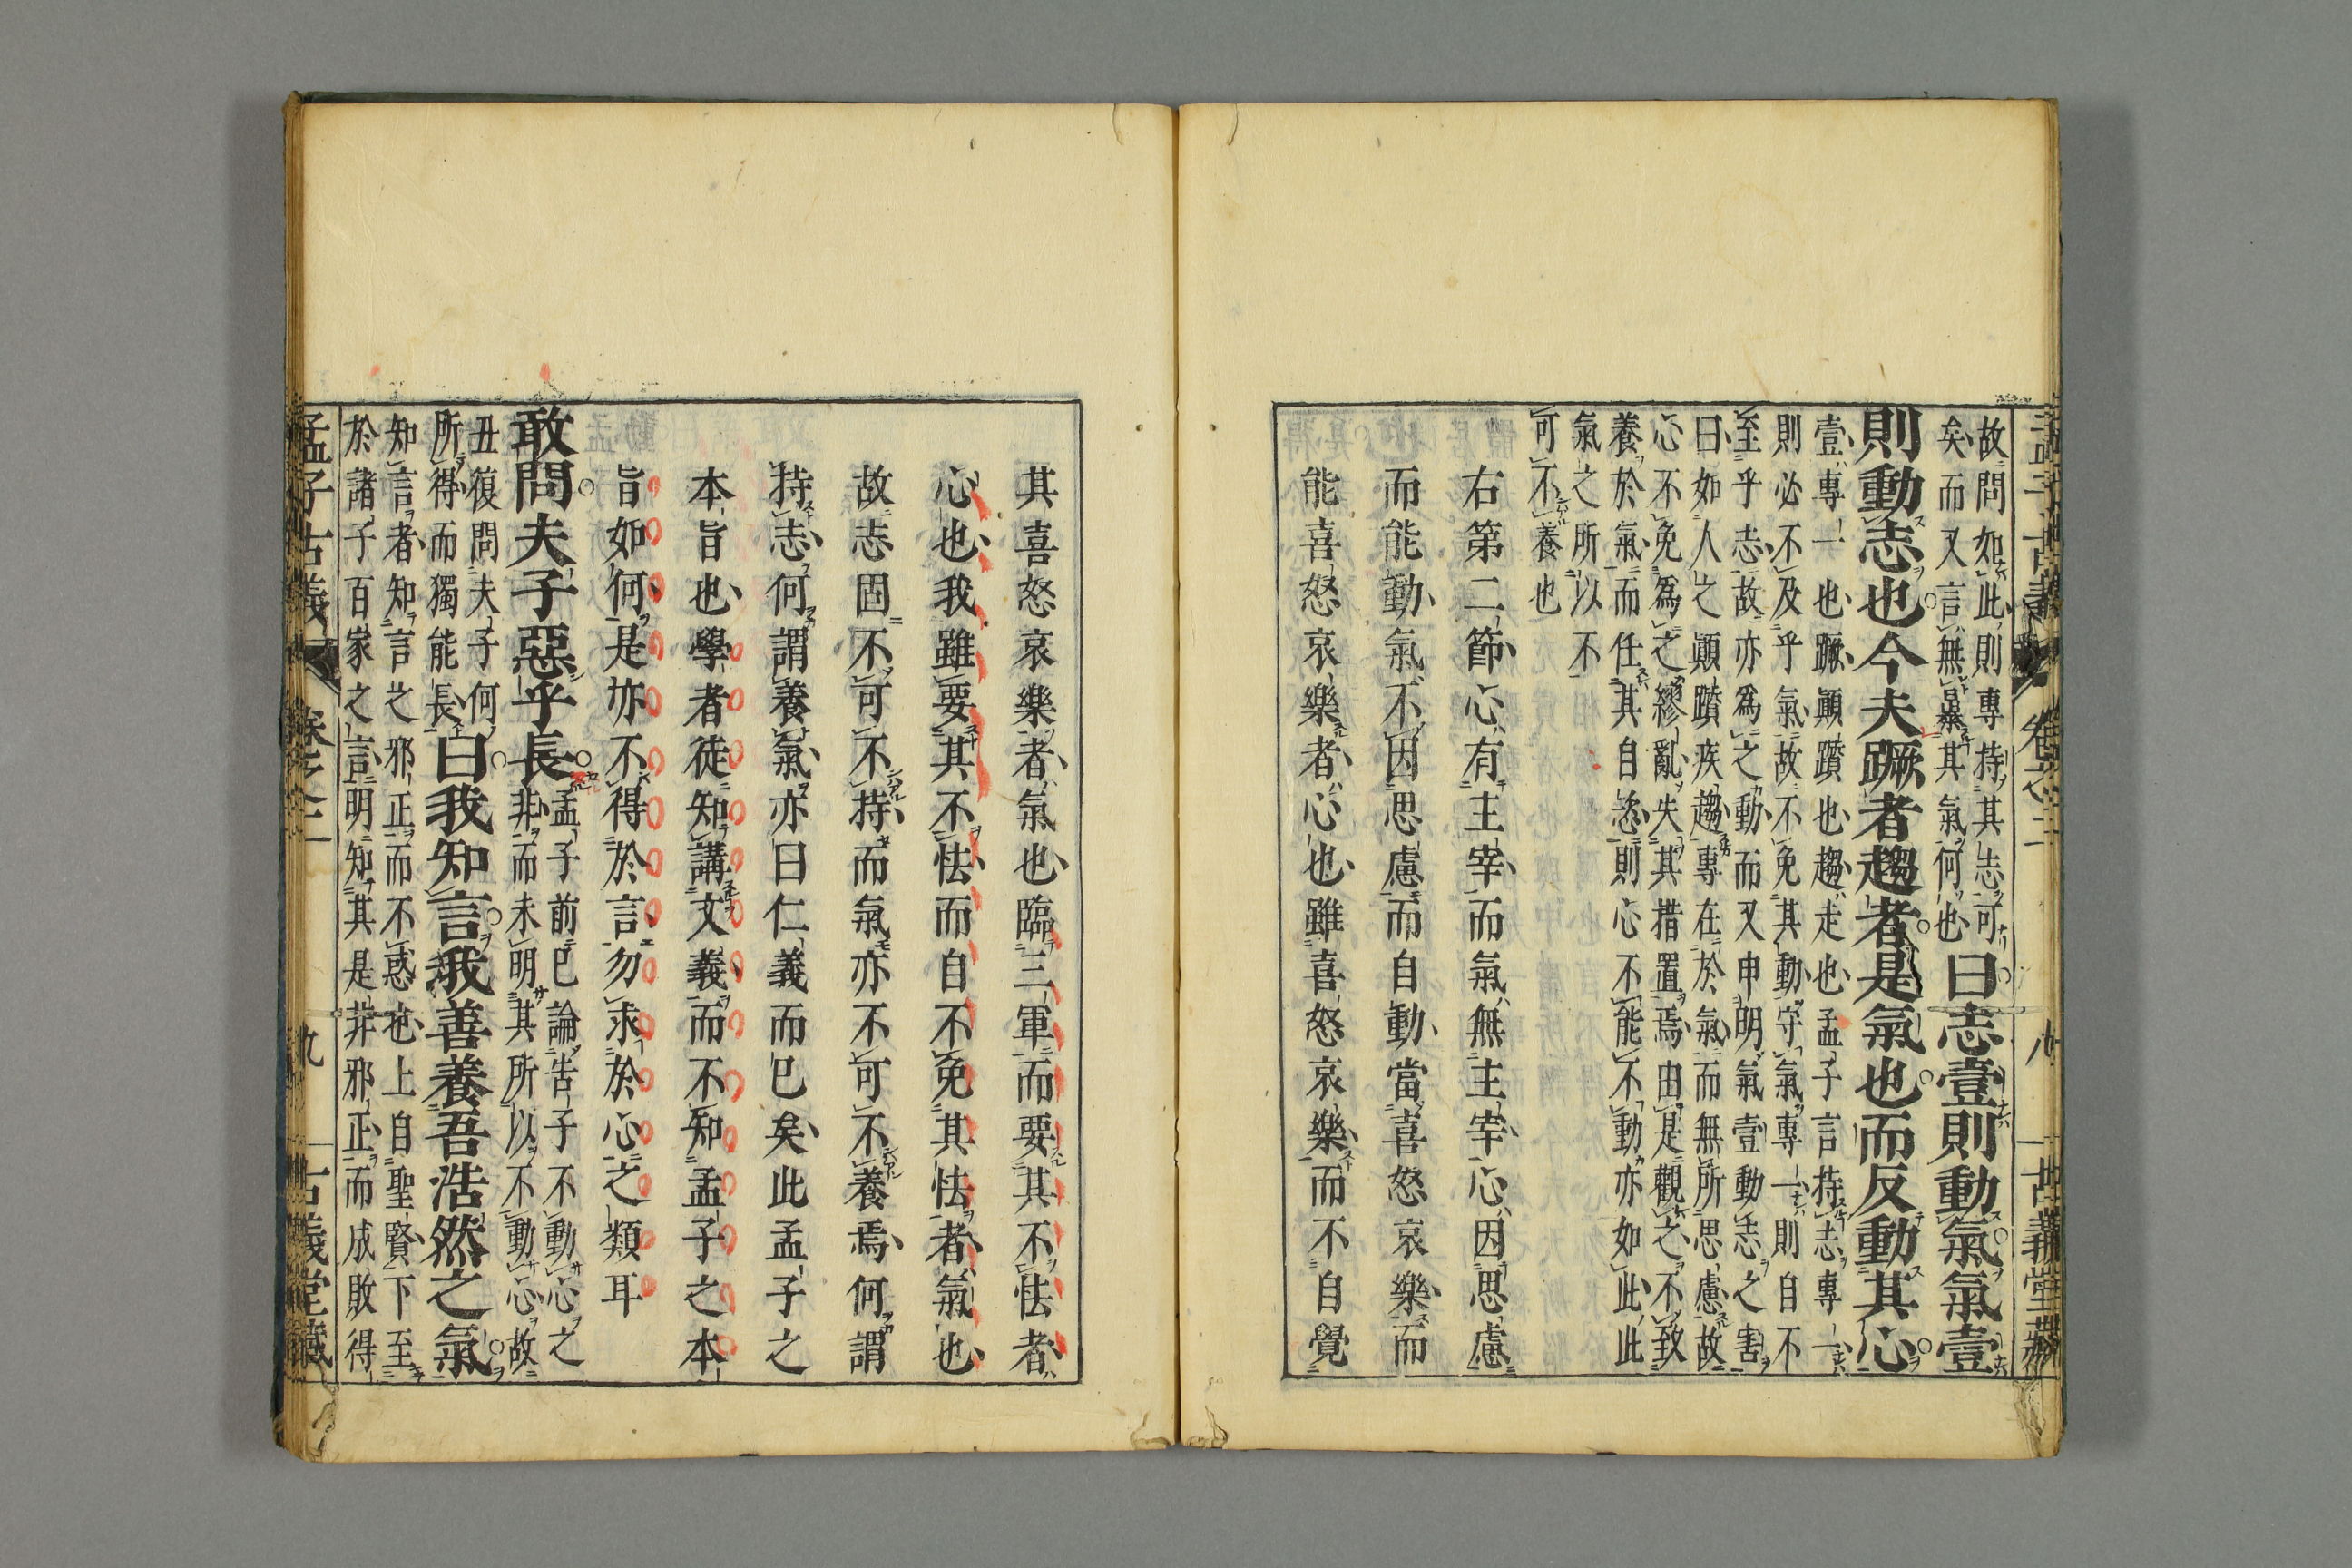 孟子古義 卷之二 八 古義堂藏
故問如此則專持其志可
矣而又言無暴其氣何也
曰志壹則動氣氣壹
則動志也今夫蹶者趨者是氣也而反動其心
壹專一也蹶顚躓也趨走也孟子言持志專一
則必不及乎氣故不免其動守氣專一則自不
至乎志故亦爲之動而又申明氣壹動志之害
曰如人之顚躓疾趨專在於氣而無所思慮故
心不免爲之繆亂失其措置焉由是觀之不致
養於氣而任其自恣則心不能不動亦如此此
氣之所以不
可不養也
右第二節心有主宰而氣無主宰心因思慮
而能動氣不因思慮而自動當喜怒哀樂而
能喜怒哀樂者心也雖喜怒哀樂而不自覺
其喜怒哀樂者氣也臨三軍而要其不怯者
心也我雖要其不怯而自不免其怯者氣也
故志固不可不持而氣亦不可不養焉何謂
持志何謂養氣亦曰仁義而已矣此孟子之
本旨也學者徒知講文義而不知孟子之本
旨如何是亦不得於言勿求於心之類耳
敢問夫子惡乎長
孟子前已論告子不動心之
非而未明其所以不動心故
丑復問夫子何
所得而獨能長
曰我知言我善養吾浩然之氣
知言者知言之邪正而不惑也上自聖賢下至
於諸子百家之言明知其是非邪正而成敗得
孟子古義 卷之二 九 古義堂藏